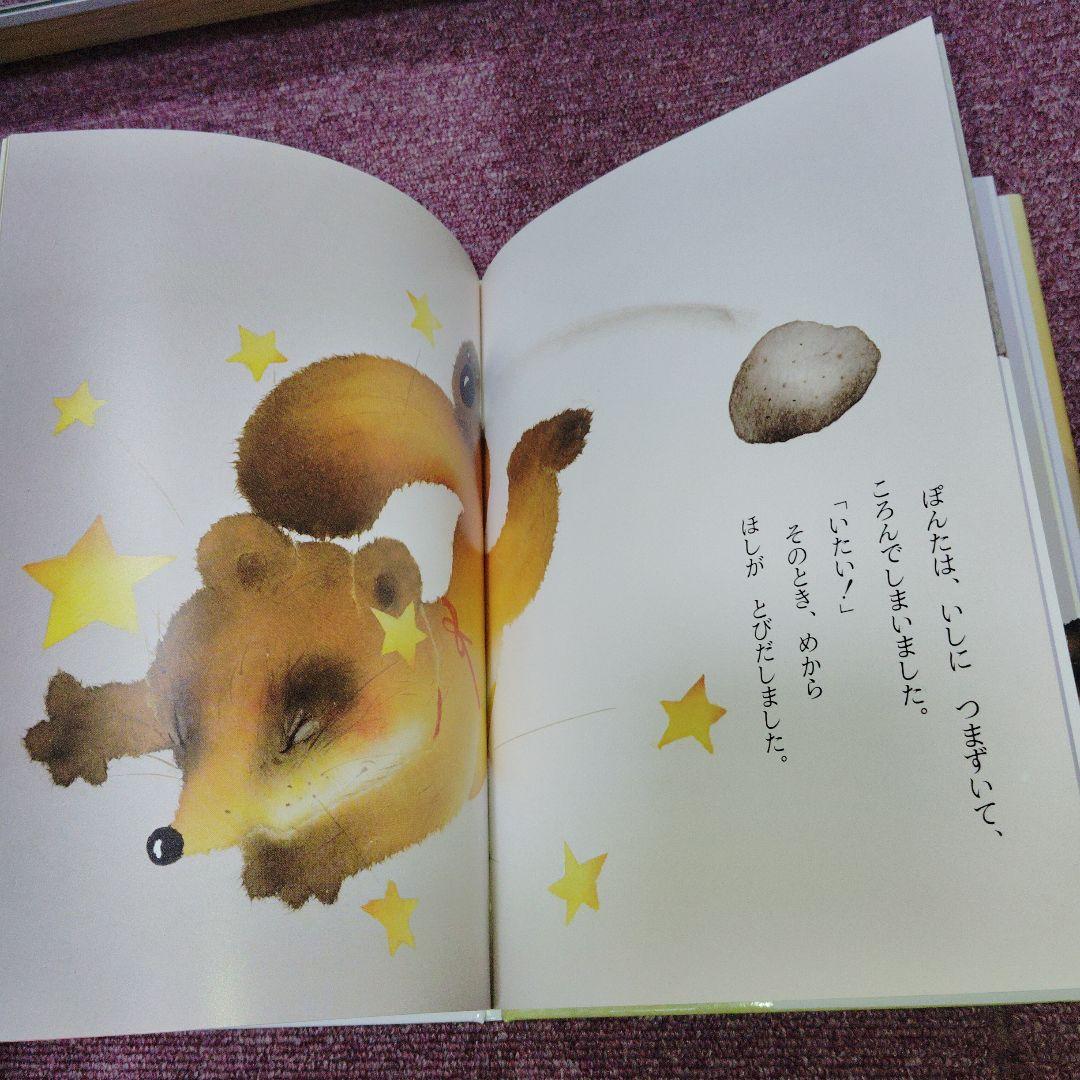 ぽんたは、いしに　つまずいて、
ころんでしまいました。
「いたい！」
そのとき、めから
ほしが　とびだしました。